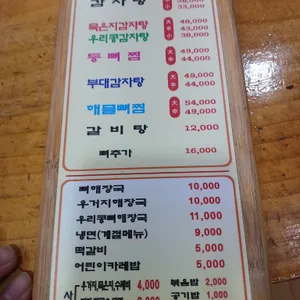 감자탕 33,000
묵은지감자탕 대 48,000
중 43,000
우리콩감자탕 소 38,000
등뼈찜 대 49,000
중 44,000
부대감자탕 대 49,000
중 44,000
해물뼈찜 대 54,000
중 49,000
갈비탕 12,000
뼈추가 16,000
뼈해장국 10,000
우거지해장국 10,000
우리콩뼈해장국 11,000
냉면(계절메뉴) 9,000
떡갈비 5,000
어린이카레밥 5,000
사 우거지,묵은지,수제비 4,000 볶음밥 2,000
공기밥